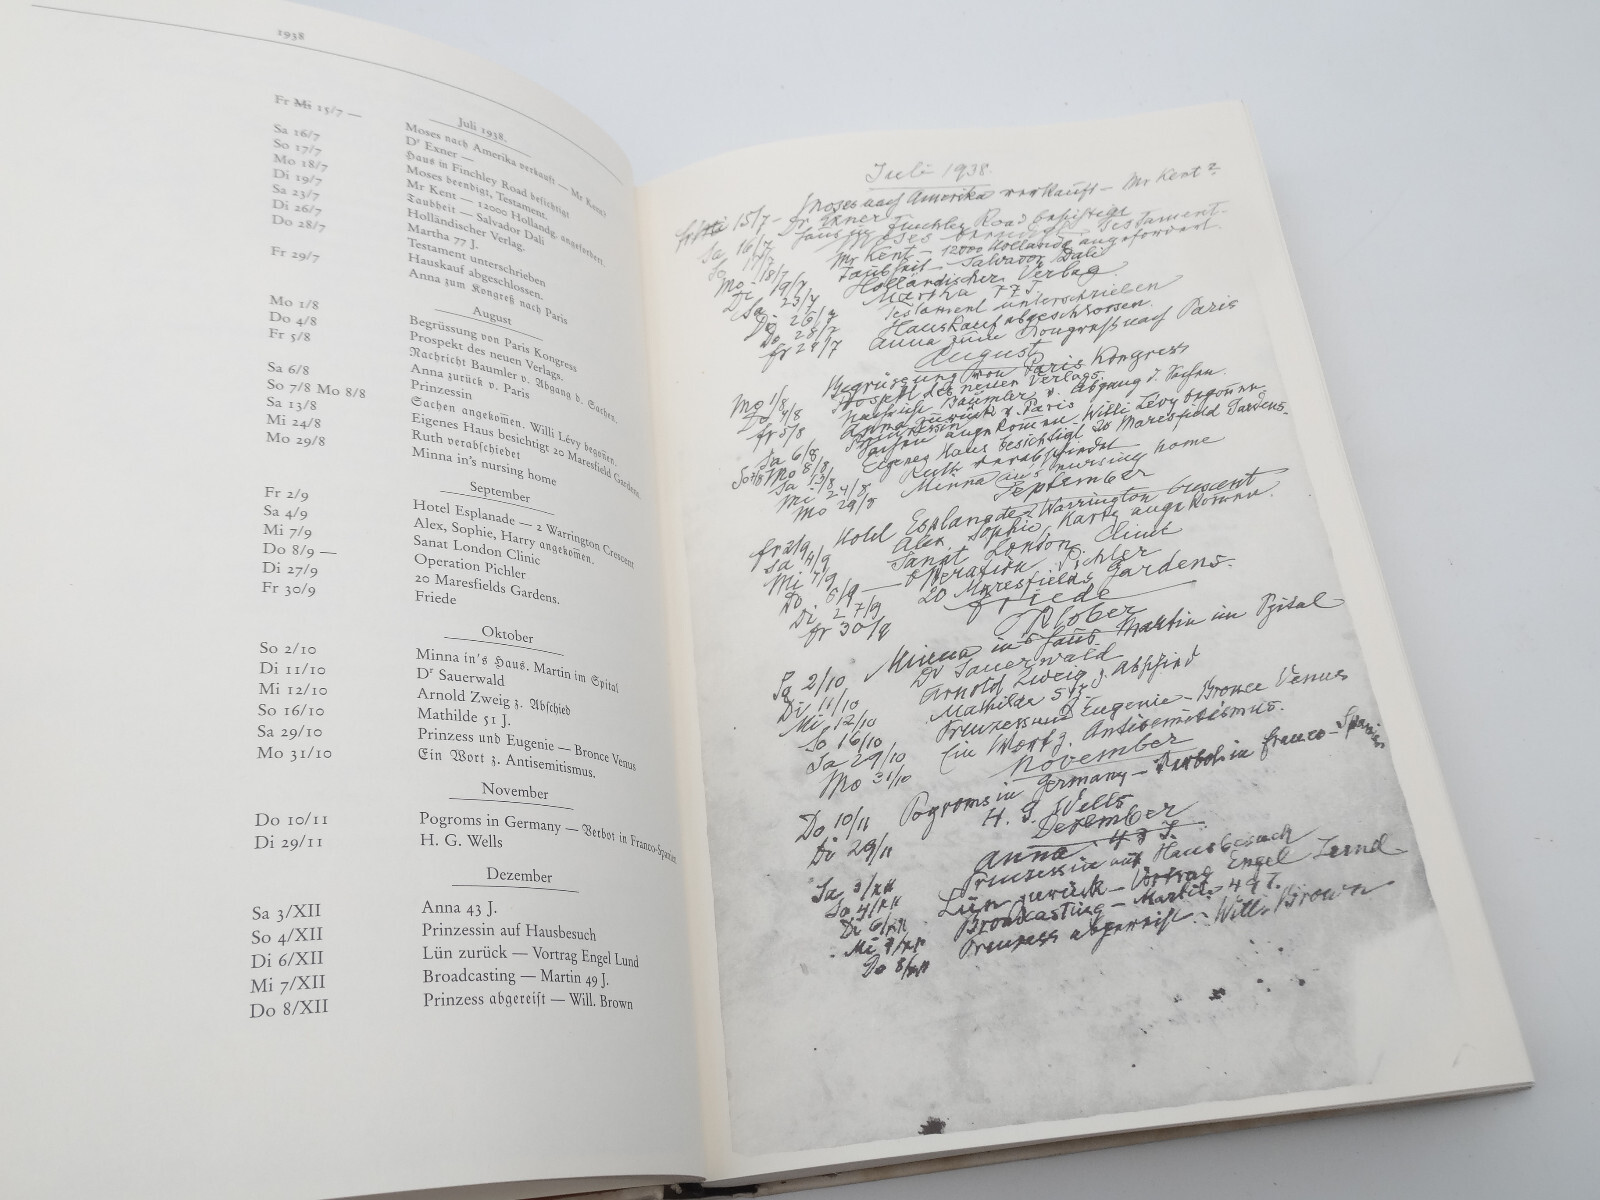 1938
Juli 1938.
Fr Mi 15/7 — Moses nach Amerika verkauft — Mr Kent?
Dr Exner —
Sa 16/7 Haus in Finchley Road besichtigt
So 17/7 Moses beendigt, Testament.
Mo 18/7 Mr Kent — 12000 Hollandg. angefordert.
Di 19/7 Taubheit — Salvador Dali
Sa 23/7 Holländischer Verlag.
Di 26/7 Martha 77 J.
Do 28/7 Testament unterschrieben
Hauskauf abgeschlossen.
Fr 29/7 Anna zum Kongreß nach Paris
August
Mo 1/8 Begrüssung von Paris Kongress
Do 4/8 Prospekt des neuen Verlags.
Fr 5/8 Nachricht Baumler v. Abgang d. Sachen.
Anna zurück v. Paris
Sa 6/8 Prinzessin
So 7/8 Mo 8/8 Sachen angekom̅en. Willi Lévy begon̅en.
Sa 13/8 Eigenes Haus besichtigt 20 Maresfield Gardens.
Mi 24/8 Ruth verabschiedet
Mo 29/8 Minna in's nursing home
September
Fr 2/9 Hotel Esplanade — 2 Warrington Crescent
Sa 4/9 Alex, Sophie, Harry angekom̅en.
Mi 7/9 Sanat London Clinic
Do 8/9 — Operation Pichler
Di 27/9 20 Maresfields Gardens.
Fr 30/9 Friede
Oktober
So 2/10 Minna in's Haus. Martin im Spital
Di 11/10 Dr Sauerwald
Mi 12/10 Arnold Zweig z. Abschied
So 16/10 Mathilde 51 J.
Sa 29/10 Prinzess und Eugenie — Bronce Venus
Mo 31/10 Ein Wort z. Antisemitismus.
November
Do 10/11 Pogroms in Germany — Verbot in Franco-Spanien
Di 29/11 H. G. Wells
Dezember
Sa 3/XII Anna 43 J.
So 4/XII Prinzessin auf Hausbesuch
Di 6/XII Lün zurück — Vortrag Engel Lund
Mi 7/XII Broadcasting — Martin 49 J.
Do 8/XII Prinzess abgereist — Will. Brown
Juli 1938.
Fr 15/7 - Moses nach Amerika verkauft — Mr Kent?
Dr Exner
Sa 16/7 Haus in Finchley Road besichtigt
So 17/7 Moses beendigt, Testament.
Mo 18/7 Mr Kent — 12000 Hollandg angefordert.
Di 19/7 Taubheit — Salvador Dali
Sa 23/7 Holländischer Verlag.
Di 26/7 Martha 77 J
Do 28/7 Testament unterschrieben
Hauskauf abgeschlossen.
Fr 29/7 Anna zum Kongreß nach Paris
August
Mo 1/8 Begrüssung von Paris Kongress
Do 4/8 Prospekt des neuen Verlags.
Fr 5/8 Nachricht Bäumler v. Abgang d. Sachen.
Anna zurück v. Paris
Sa 6/8 Prinzessin
So 7/8 Mo 8/8 Sachen angekom̅en. Willi Lévy begon̅en.
Sa 13/8 Eigenes Haus besichtigt 20 Maresfield Gardens.
Mi 24/8 Ruth verabschiedet
Mo 29/8 Minna in's nursing home
September
Fr 2/9 Hotel Esplanade 2 Warrington Crescent
Sa 4/9 Alex, Sophie, Harry angekom̅en.
Mi 7/9 Sanat London Clinic
Do 8/9 — Operation Pichler
Di 27/9 20 Maresfields Gardens.
Fr 30/9 Friede
Oktober
So 2/10 Minna in's Haus Martin im Spital
Di 11/10 Dr Sauerwald
Mi 12/10 Arnold Zweig z. Abschied
So 16/10 Mathilde 51 J.
Sa 29/10 Prinzess und Eugenie — Bronce Venus
Mo 31/10 Ein Wort z. Antisemitismus.
November
Do 10/11 Pogroms in Germany — Verbot in Franco-Spanien
Di 29/11 H. G. Wells
Dezember
Sa 3/XII Anna 43 J.
So 4/XII Prinzessin auf Hausbesuch
Di 6/XII Lün zurück — Vortrag Engel Lund
Mi 7/XII Broadcasting — Martin 49 J.
Do 8/XII Prinzess abgereist. — Will. Brown